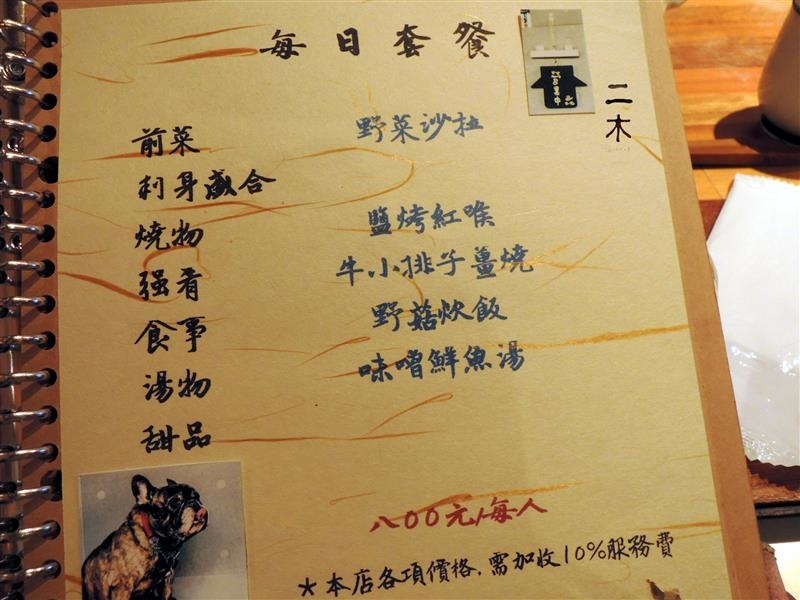 每日套餐
二木
前菜 野菜沙拉
刺身盛合
燒物 鹽烤紅喉
强肴 牛小排子薑燒
食事 野菇炊飯
湯物 味噌鮮魚湯
甜品
八00元/每人
*本店各項價格,需加收10%服務費